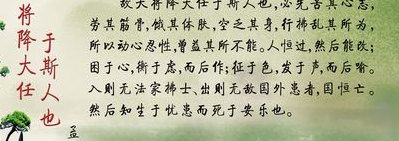 将降大任
于斯人也
孟
故天将降大任于斯人也,必先苦其心志,
劳其筋骨,饿其体肤,空乏其身,行拂乱其所为,
所以动心忍性,增益其所不能。人恒过,然后能改;
困于心,衡于虑,而后作;征于色,发于声,而后喻。
入则无法家拂士、出则无敌国外患者,国恒亡。
然后知生于忧患而死于安乐也。